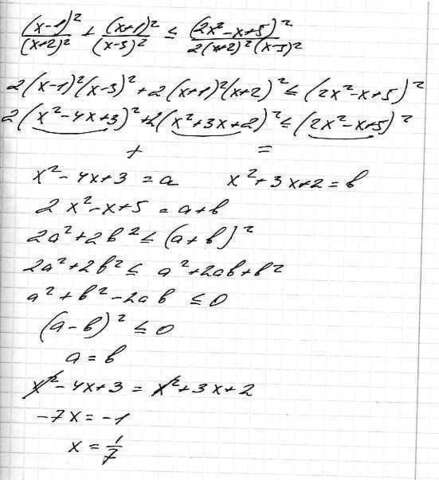 (x-1)²/(x+2)² + (x+1)²/(x-3)² ≤ (2x²-x+5)²/2(x+2)²(x-3)²
2(x-1)²(x-3)² + 2(x+1)²(x+2)² ≤ (2x²-x+5)²
2(x²-4x+3)² + 2(x²+3x+2)² ≤ (2x²-x+5)²
+ =
x²-4x+3 = a x²+3x+2 = b
2x²-x+5 = a+b
2a²+2b² ≤ (a+b)²
2a²+2b² ≤ a²+2ab+b²
a²+b²-2ab ≤ 0
(a-b)² ≤ 0
a = b
x²-4x+3 = x²+3x+2
-7x = -1
x = 1/7